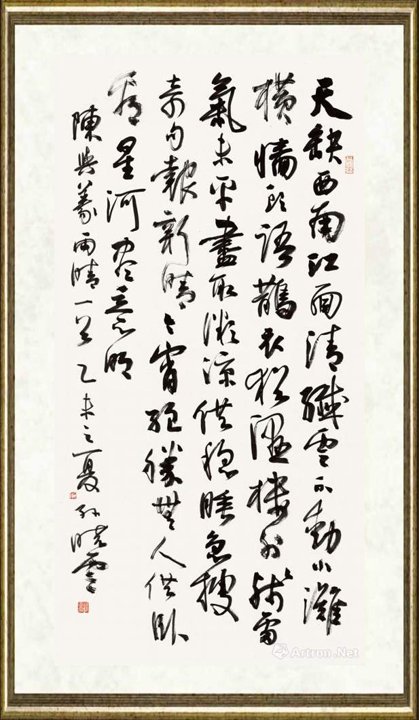 天缺西南江面清纖雲不動小灘
橫牆頭語鵲衣猶溼樓外殘雷
氣未平盡取微涼供穩睡急搜
奇句報新晴今宵絕勝無人供卧
看星河盡意明
陳與義雨晴一首乙未之夏孫曉雲
Artron.Net